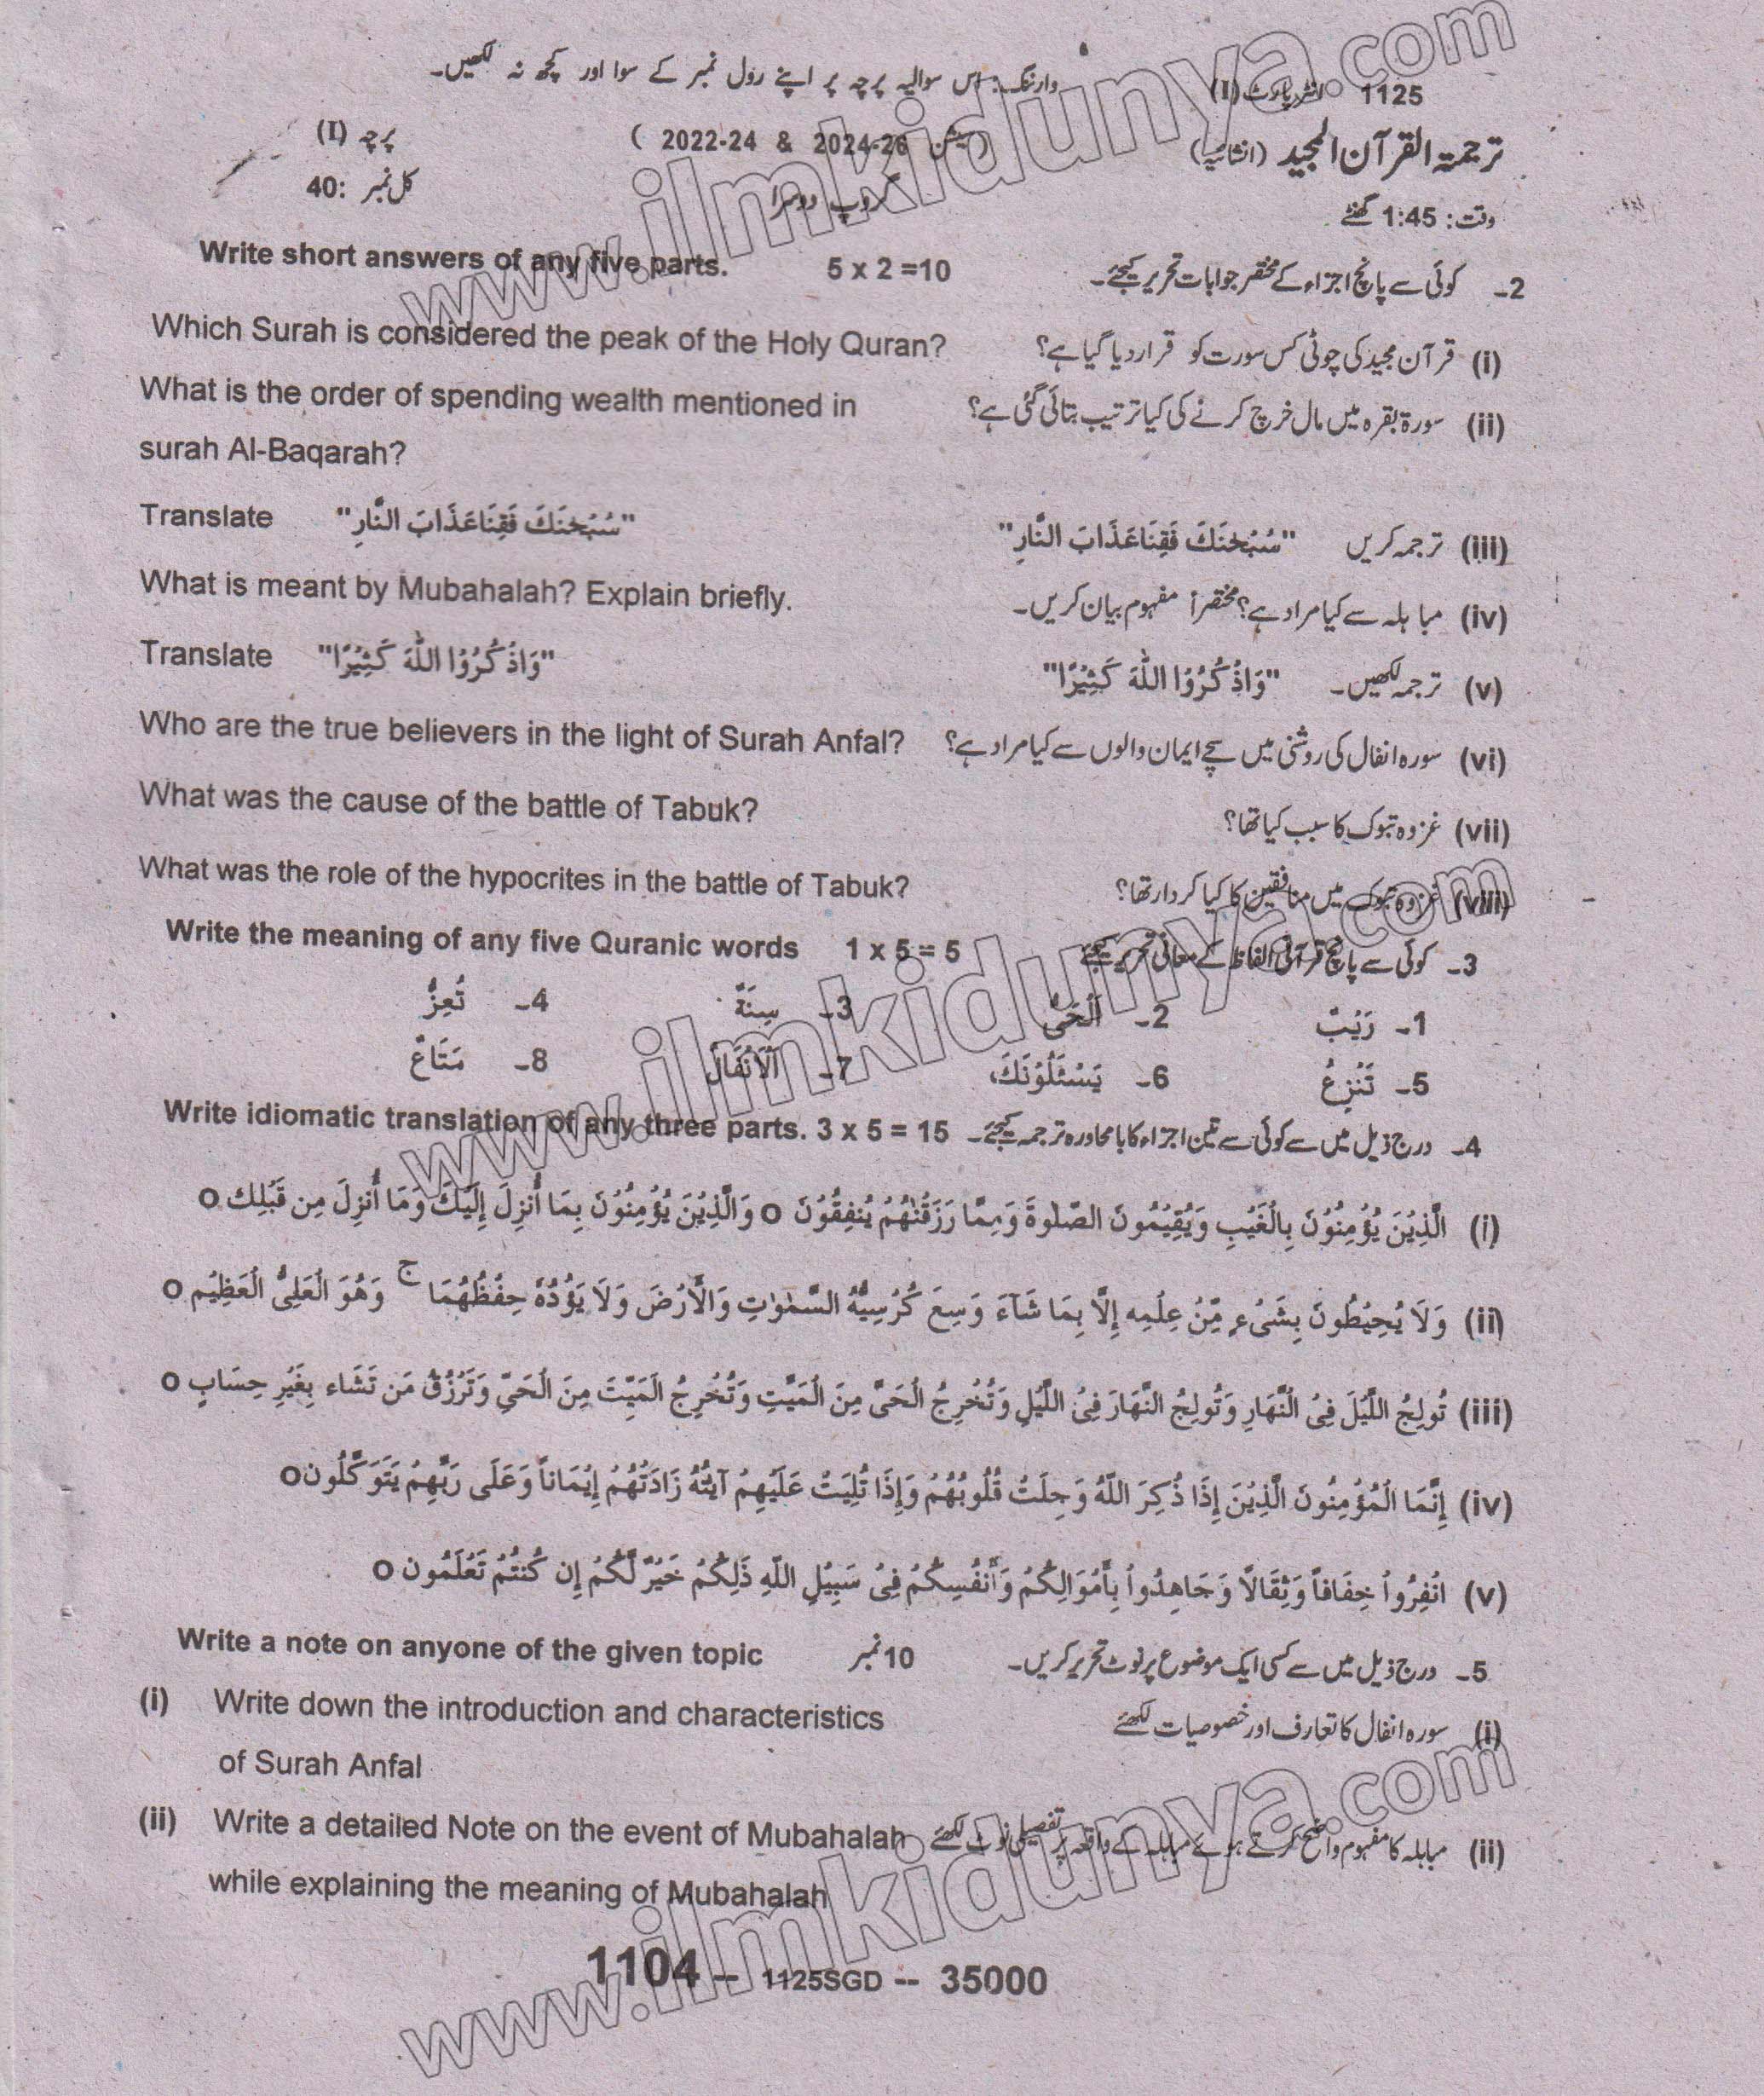 وارننگ: اس سوالیہ پرچہ پر اپنے رول نمبر کے سوا اور کچھ نہ لکھیں۔
1125 انٹر پارٹ (I)
ترجمۃ القرآن المجید (انشائیہ) (سیشن 2024-26 & 2022-24) پرچہ (I)
وقت: 1:45 گھنٹے گروپ دوسرا کل نمبر :40
Write short answers of any five parts. 5 x 2 =10 2۔ کوئی سے پانچ اجزاء کے مختصر جوابات تحریر کیجئے۔
Which Surah is considered the peak of the Holy Quran? (i) قرآن مجید کی چوٹی کس سورت کو قرار دیا گیا ہے؟
What is the order of spending wealth mentioned in (ii) سورۃ بقرہ میں مال خرچ کرنے کی کیا ترتیب بتائی گئی ہے؟
surah Al-Baqarah?
Translate "سُبْحٰنَكَ فَقِنَا عَذَابَ النَّارِ" (iii) ترجمہ کریں "سُبْحٰنَكَ فَقِنَا عَذَابَ النَّارِ"
What is meant by Mubahalah? Explain briefly. (iv) مباہلہ سے کیا مراد ہے؟ مختصراً مفہوم بیان کریں۔
Translate "وَاذْكُرُوْا اللّٰهَ كَثِيْرًا" (v) ترجمہ لکھیں۔ "وَاذْكُرُوْا اللّٰهَ كَثِيْرًا"
Who are the true believers in the light of Surah Anfal? (vi) سورہ انفال کی روشنی میں سچے ایمان والوں سے کیا مراد ہے؟
What was the cause of the battle of Tabuk? (vii) غزوہ تبوک کا سبب کیا تھا؟
What was the role of the hypocrites in the battle of Tabuk? (viii) غزوہ تبوک میں منافقین کا کیا کردار تھا؟
Write the meaning of any five Quranic words 1 x 5 = 5 3۔ کوئی سے پانچ قرآنی الفاظ کے معانی تحریر کیجئے
1۔ رَيْبٌ 2۔ اَلْحَیُّ 3۔ سِنَةٌ 4۔ تُعِزُّ
5۔ تَنْزِعُ 6۔ يَسْئَلُوْنَكَ 7۔ اَلْاَنْفَالُ 8۔ مَتَاعٌ
Write idiomatic translation of any three parts. 3 x 5 = 15 4۔ درج ذیل میں سے کوئی سے تین اجزاء کا بامحاورہ ترجمہ کیجئے۔
(i) الَّذِيْنَ يُؤْمِنُوْنَ بِالْغَيْبِ وَيُقِيْمُونَ الصَّلٰوةَ وَمِمَّا رَزَقْنٰهُمْ يُنفِقُوْنَ o وَالَّذِيْنَ يُؤْمِنُوْنَ بِمَا أُنزِلَ إِلَيْكَ وَمَا أُنْزِلَ مِن قَبْلِك o
(ii) وَلَا يُحِيْطُونَ بِشَیْءٍ مِّنْ عِلْمِه إِلَّا بِمَا شَآءَ وَسِعَ كُرْسِيُّهُ السَّمٰوٰتِ وَالْأَرْضَ وَلَا يَؤُدُهٗ حِفْظُهُمَا ج وَهُوَ الْعَلِیُّ الْعَظِيْم o
(iii) تُولِجُ اللَّيْلَ فِیْ النَّهَارِ وَتُولِجُ النَّهَارَ فِیْ اللَّيْلِ وَتُخْرِجُ الْحَیَّ مِنَ الْمَيِّتِ وَتُخْرِجُ الَمَيِّتَ مِنَ الْحَیِّ وَتَرْزُقُ مَن تَشَاء بِغَيْرِ حِسَابٍ o
(iv) إِنَّمَا الْمُؤْمِنُونَ الَّذِيْنَ إِذَا ذُكِرَ اللّٰهُ وَجِلَتْ قُلُوبُهُمْ وَإِذَا تُلِيَتْ عَلَيْهِمْ آيٰتُهُ زَادَتْهُمْ إِيْمَاناً وَعَلَى رَبِّهِمْ يَتَوَكَّلُون o
(v) انْفِرُواْ خِفَافاً وَثِقَالاً وَجَاهِدُواْ بِأَمْوَالِكُمْ وَأَنْفُسِكُمْ فِیْ سَبِيْلِ اللّٰهِ ذَلِكُمْ خَيْرٌ لَّكُمْ إِن كُنْتُمْ تَعْلَمُون o
Write a note on anyone of the given topic 10 نمبر 5۔ درج ذیل میں سے کسی ایک موضوع پر نوٹ تحریر کریں۔
(i) Write down the introduction and characteristics (i) سورہ انفال کا تعارف اور خصوصیات لکھئے
of Surah Anfal
(ii) Write a detailed Note on the event of Mubahalah (ii) مباہلہ کا مفہوم واضح کرتے ہوئے مباہلہ کے واقعہ پر تفصیلی نوٹ لکھئے
while explaining the meaning of Mubahalah
1104 -- 1125SGD -- 35000
www.ilmkidunya.com
www.ilmkidunya.com
www.ilmkidunya.com